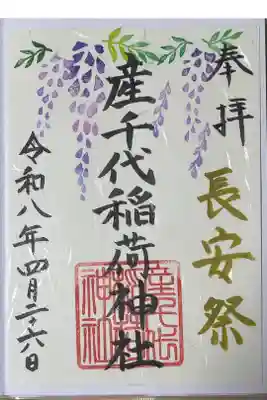 奉拝
長安祭
産千代稲荷神社
令和八年四月二十六日